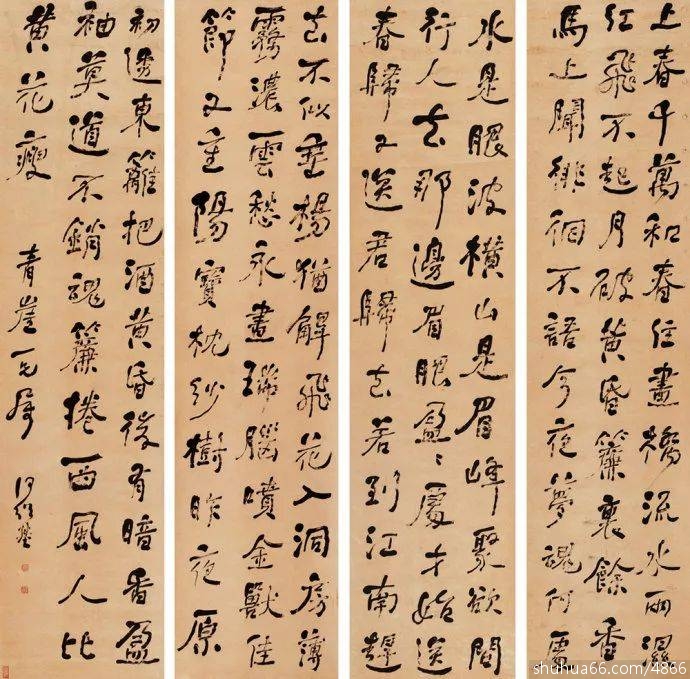 上春千萬和春住畫橋流水雨濕
紅飛不起月破黃昏簾裏餘香
馬上聞徘徊不語今夜夢魂何處
水是眼波橫山是眉峰聚欲問
行人去那邊眉眼盈〻處才始送
春歸又送君歸去若到江南趕
去不似垂楊猶解飛花入洞房薄
霧濃雲愁永晝瑞腦噴金獸佳
節又重陽寶枕紗樹昨夜原
初透東籬把酒黃昏後有暗香盈
袖莫道不銷魂簾捲西風人比
黃花瘦 青崖屬 何紹基
shuhua66.com/4866